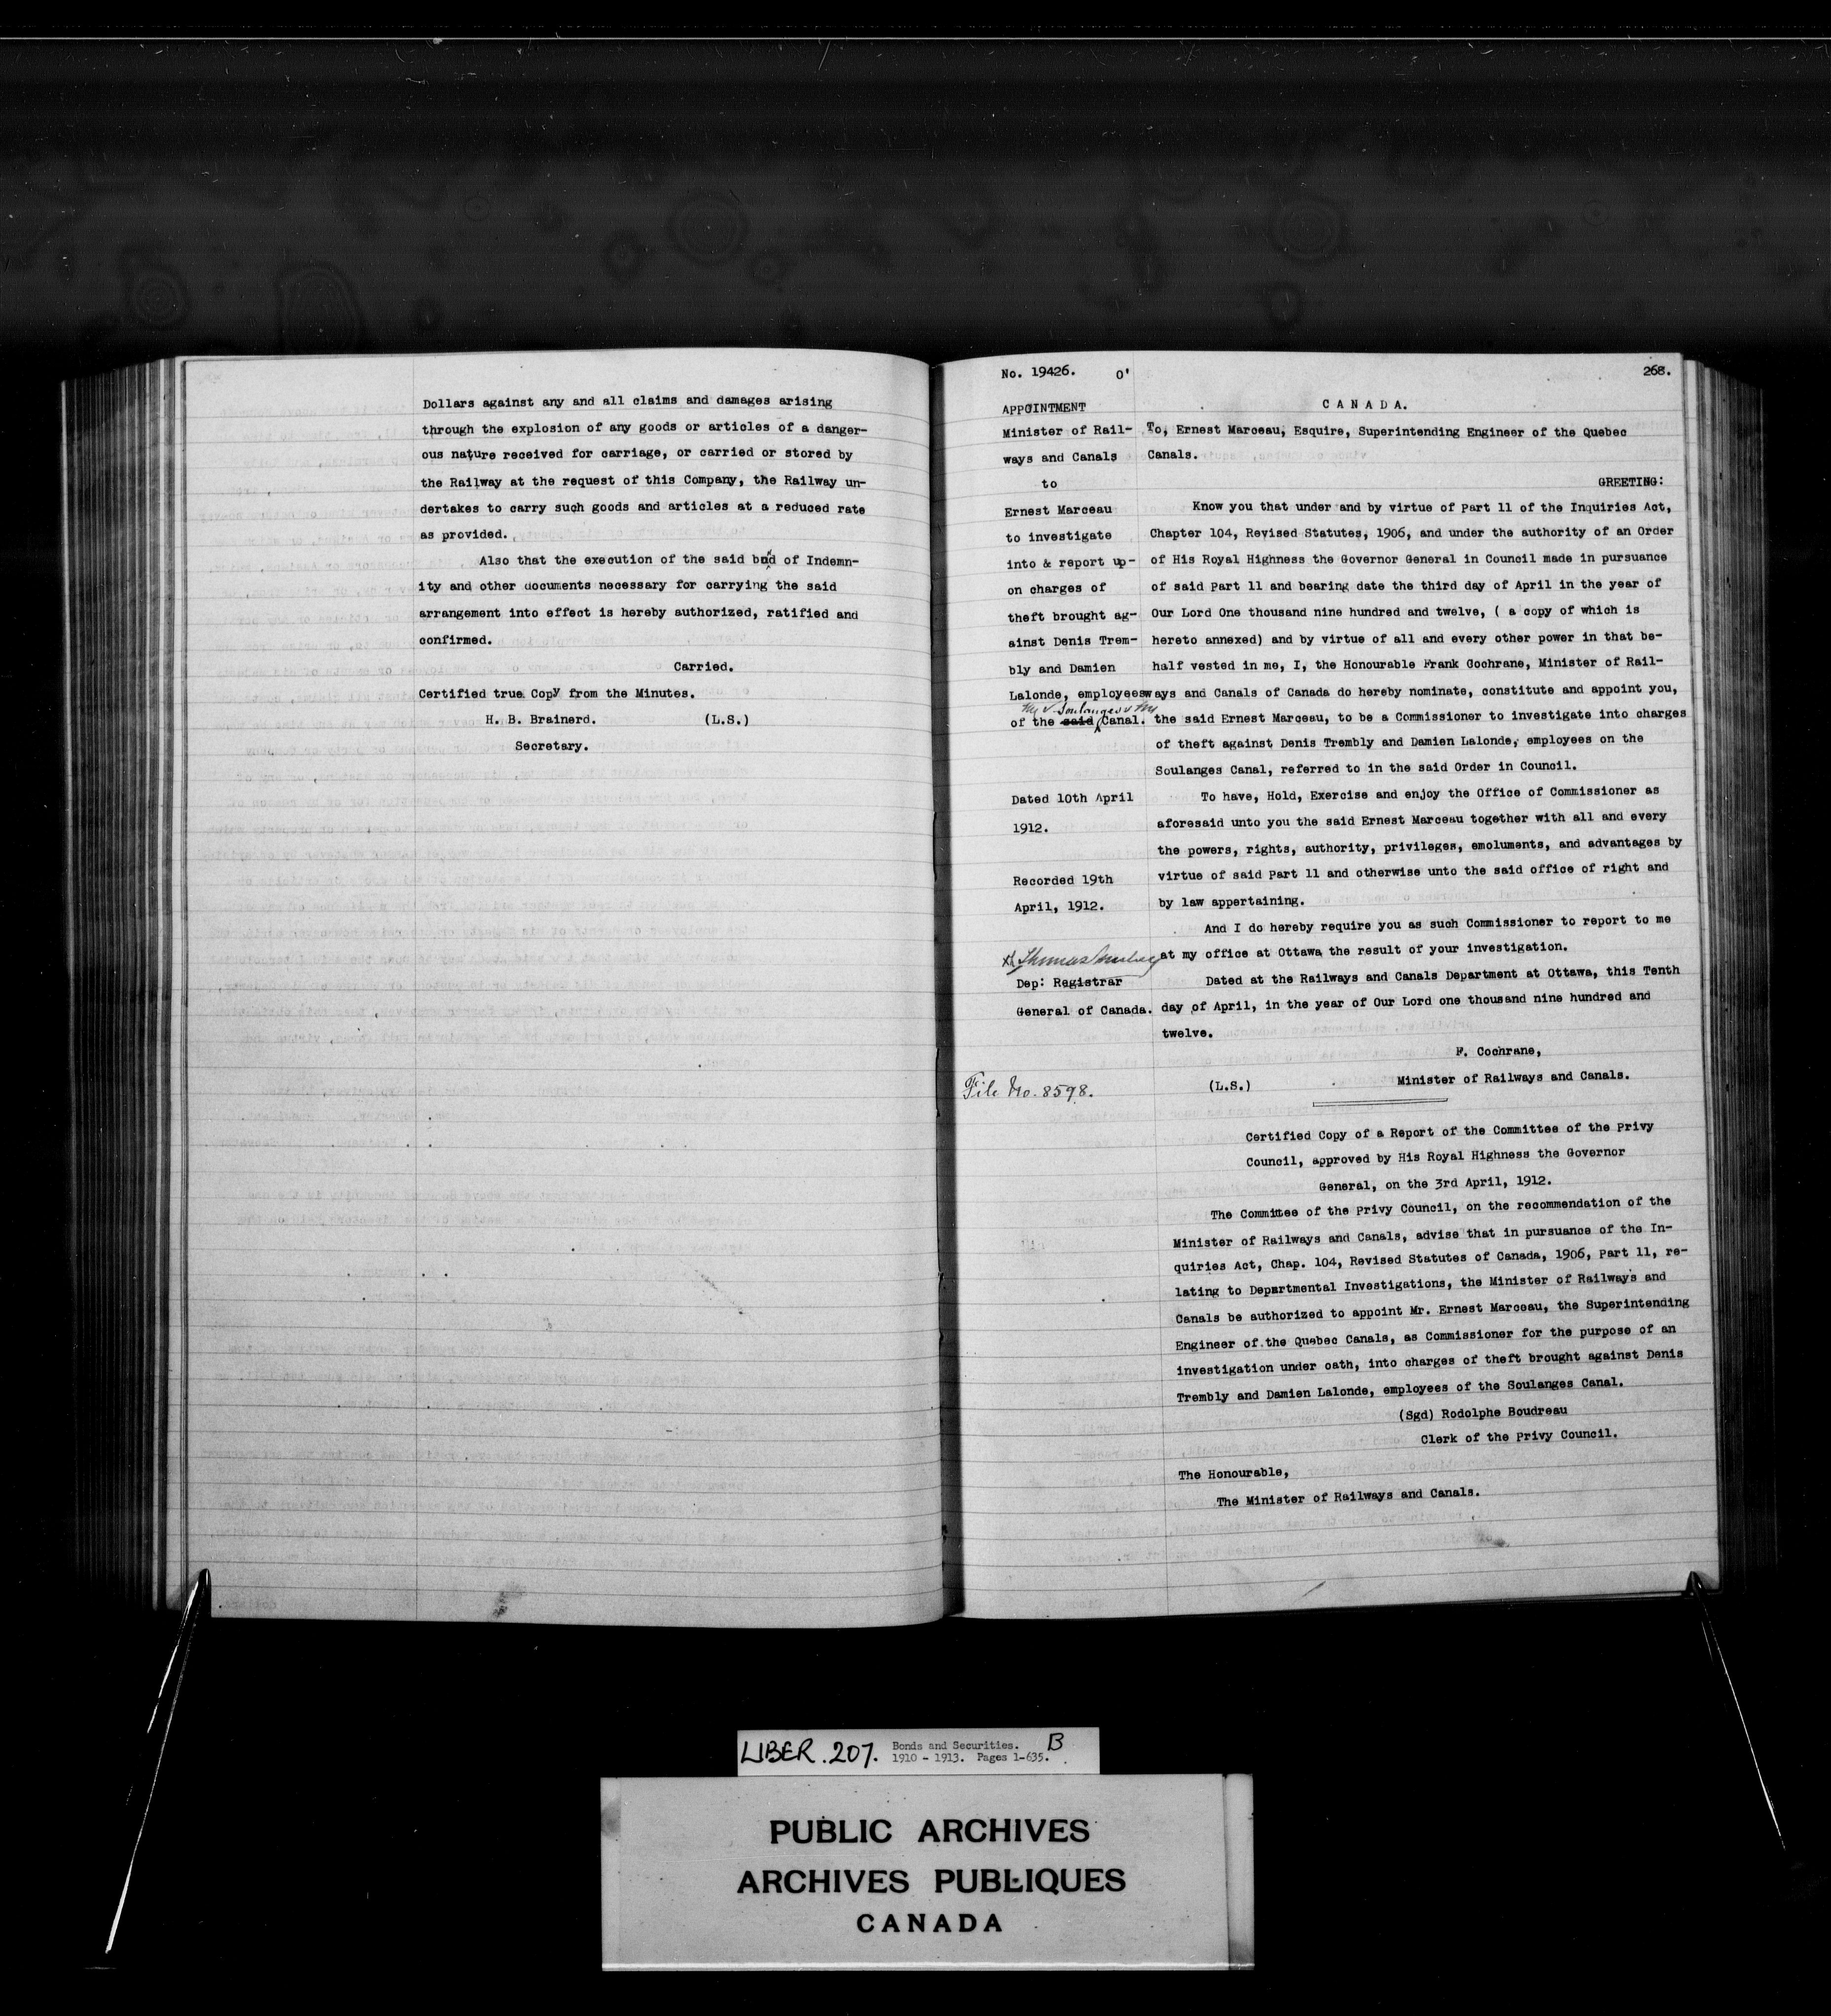 Dollars against any and all claims and damages arising
through the explosion of any goods or articles of a danger-
ous nature received for carriage, or carried or stored by
the Railway at the request of this Company, the Railway un-
dertakes to carry such goods and articles at a reduced rate
as provided.
Also that the execution of the said bond of Indemn-
ity and other documents necessary for carrying the said
arrangement into effect is hereby authorized, ratified and
confirmed.
Carried.
Certified true Copy from the Minutes.
H. B. Brainerd. (L.S.)
Secretary.
No. 19426. O'
268.
APPOINTMENT
Minister of Rail-
ways and Canals
to
Ernest Marceau
to investigate
into & report up-
on charges of
theft brought ag-
ainst Denis Trem-
bly and Damien
Lalonde, employees
Soulanges
of the said Canal.
Dated 10th April
1912.
Recorded 19th
April, 1912.
Thomas Mulvey
Dep: Registrar
General of Canada.
File No. 8598.
CANADA.
To, Ernest Marceau, Esquire, Superintending Engineer of the Quebec
Canals.
GREETING:
Know you that under and by virtue of Part 11 of the Inquiries Act,
Chapter 104, Revised Statutes, 1906, and under the authority of an Order
of His Royal Highness the Governor General in Council made in pursuance
of said Part 11 and bearing date the third day of April in the year of
Our Lord One thousand nine hundred and twelve, ( a copy of which is
hereto annexed) and by virtue of all and every other power in that be-
half vested in me, I, the Honourable Frank Cochrane, Minister of Rail-
ways and Canals of Canada do hereby nominate, constitute and appoint you,
the said Ernest Marceau, to be a Commissioner to investigate into charges
of theft against Denis Trembly and Damien Lalonde, employees on the
Soulanges Canal, referred to in the said Order in Council.
To have, Hold, Exercise and enjoy the Office of Commissioner as
aforesaid unto you the said Ernest Marceau together with all and every
the powers, rights, authority, privileges, emoluments, and advantages by
virtue of said Part 11 and otherwise unto the said office of right and
by law appertaining.
And I do hereby require you as such Commissioner to report to me
at my office at Ottawa the result of your investigation.
Dated at the Railways and Canals Department at Ottawa, this Tenth
day of April, in the year of Our Lord one thousand nine hundred and
twelve.
F. Cochrane,
(L.S.) Minister of Railways and Canals.
Certified Copy of a Report of the Committee of the Privy
Council, approved by His Royal Highness the Governor
General, on the 3rd April, 1912.
The Committee of the Privy Council, on the recommendation of the
Minister of Railways and Canals, advise that in pursuance of the In-
quiries Act, Chap. 104, Revised Statutes of Canada, 1906, Part 11, re-
lating to Departmental Investigations, the Minister of Railways and
Canals be authorized to appoint Mr. Ernest Marceau, the Superintending
Engineer of the Quebec Canals, as Commissioner for the purpose of an
investigation under oath, into charges of theft brought against Denis
Trembly and Damien Lalonde, employees of the Soulanges Canal.
(Sgd) Rodolphe Boudreau
Clerk of the Privy Council.
The Honourable,
The Minister of Railways and Canals.
LIBER. 207. Bonds and Securities. B
1910 - 1913. Pages 1-635.
PUBLIC ARCHIVES
ARCHIVES PUBLIQUES
CANADA